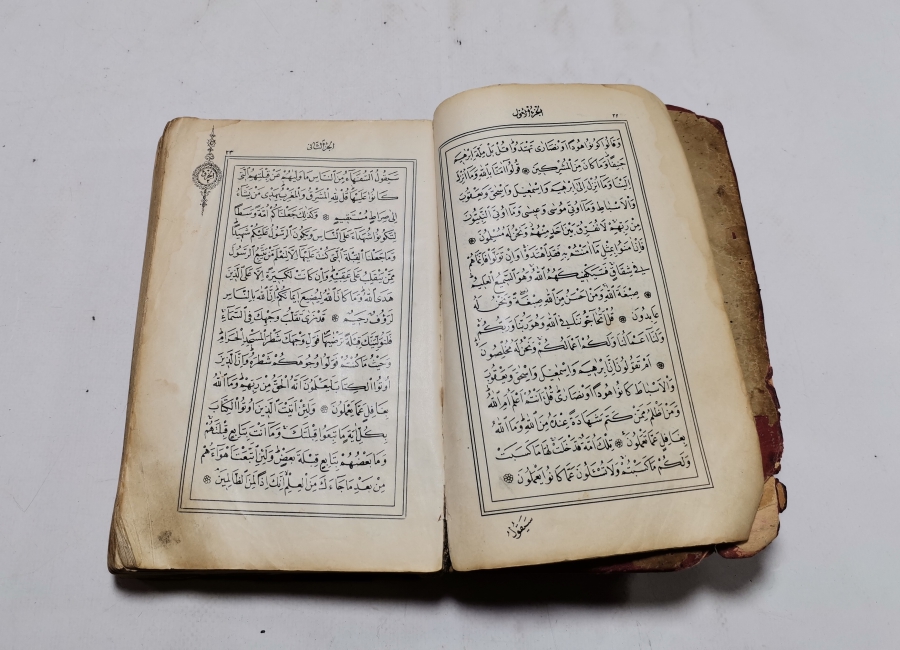 الجزء الأول
٢٢
وَقَالُوا كُونُوا هُودًا اَوْ نَصَارٰى تَهْتَدُوا قُلْ بَلْ مِلَّةَ اِبْرٰهِيمَ
حَنِيفًا وَمَا كَانَ مِنَ الْمُشْرِكِينَ ۞ قُولُوا اٰمَنَّا بِاللّٰهِ وَمَا اُنْزِلَ
اِلَيْنَا وَمَا اُنْزِلَ اِلٰى اِبْرٰهِيمَ وَاِسْمٰعِيلَ وَاِسْحٰقَ وَيَعْقُوبَ
وَالْاَسْبَاطِ وَمَا اُوتِيَ مُوسٰى وَعِيسٰى وَمَا اُوتِيَ النَّبِيُّونَ
مِنْ رَبِّهِمْ لَا نُفَرِّقُ بَيْنَ اَحَدٍ مِنْهُمْ وَنَحْنُ لَهُ مُسْلِمُونَ ۞
فَاِنْ اٰمَنُوا بِمِثْلِ مَا اٰمَنْتُمْ بِهِ فَقَدِ اهْتَدَوْا وَاِنْ تَوَلَّوْا فَاِنَّمَا هُمْ
فِي شِقَاقٍ فَسَيَكْفِيكَهُمُ اللّٰهُ وَهُوَ السَّمِيعُ الْعَلِيمُ
۞ صِبْغَةَ اللّٰهِ وَمَنْ اَحْسَنُ مِنَ اللّٰهِ صِبْغَةً وَنَحْنُ لَهُ
عَابِدُونَ ۞ قُلْ اَتُحَاجُّونَنَا فِي اللّٰهِ وَهُوَ رَبُّنَا وَرَبُّكُمْ
وَلَنَا اَعْمَالُنَا وَلَكُمْ اَعْمَالُكُمْ وَنَحْنُ لَهُ مُخْلِصُونَ
۞ اَمْ تَقُولُونَ اِنَّ اِبْرٰهِيمَ وَاِسْمٰعِيلَ وَاِسْحٰقَ وَيَعْقُوبَ
وَالْاَسْبَاطَ كَانُوا هُودًا اَوْ نَصَارٰى قُلْ ءَاَنْتُمْ اَعْلَمُ اَمِ اللّٰهُ
وَمَنْ اَظْلَمُ مِمَّنْ كَتَمَ شَهَادَةً عِنْدَهُ مِنَ اللّٰهِ وَمَا اللّٰهُ
بِغَافِلٍ عَمَّا تَعْمَلُونَ ۞ تِلْكَ اُمَّةٌ قَدْ خَلَتْ لَهَا مَا كَسَبَتْ
وَلَكُمْ مَا كَسَبْتُمْ وَلَا تُسْئَلُونَ عَمَّا كَانُوا يَعْمَلُونَ ۞
سيقول
الجزء الثاني
٢٣
سَيَقُولُ السُّفَهَاءُ مِنَ النَّاسِ مَا وَلّٰيهُمْ عَنْ قِبْلَتِهِمُ الَّتِي
كَانُوا عَلَيْهَا قُلْ لِلّٰهِ الْمَشْرِقُ وَالْمَغْرِبُ يَهْدِي مَنْ يَشَاءُ
اِلٰى صِرَاطٍ مُسْتَقِيمٍ ۞ وَكَذٰلِكَ جَعَلْنَاكُمْ اُمَّةً وَسَطًا
لِتَكُونُوا شُهَدَاءَ عَلَى النَّاسِ وَيَكُونَ الرَّسُولُ عَلَيْكُمْ شَهِيدًا
وَمَا جَعَلْنَا الْقِبْلَةَ الَّتِي كُنْتَ عَلَيْهَا اِلَّا لِنَعْلَمَ مَنْ يَتَّبِعُ الرَّسُولَ
مِمَّنْ يَنْقَلِبُ عَلٰى عَقِبَيْهِ وَاِنْ كَانَتْ لَكَبِيرَةً اِلَّا عَلَى الَّذِينَ
هَدَى اللّٰهُ وَمَا كَانَ اللّٰهُ لِيُضِيعَ اِيمَانَكُمْ اِنَّ اللّٰهَ بِالنَّاسِ
لَرَؤُفٌ رَحِيمٌ ۞ قَدْ نَرٰى تَقَلُّبَ وَجْهِكَ فِي السَّمَاءِ
فَلَنُوَلِّيَنَّكَ قِبْلَةً تَرْضٰيهَا فَوَلِّ وَجْهَكَ شَطْرَ الْمَسْجِدِ الْحَرَامِ
وَحَيْثُ مَا كُنْتُمْ فَوَلُّوا وُجُوهَكُمْ شَطْرَهُ وَاِنَّ الَّذِينَ
اُوتُوا الْكِتَابَ لَيَعْلَمُونَ اَنَّهُ الْحَقُّ مِنْ رَبِّهِمْ وَمَا اللّٰهُ
بِغَافِلٍ عَمَّا يَعْمَلُونَ ۞ وَلَئِنْ اَتَيْتَ الَّذِينَ اُوتُوا الْكِتَابَ
بِكُلِّ اٰيَةٍ مَا تَبِعُوا قِبْلَتَكَ وَمَا اَنْتَ بِتَابِعٍ قِبْلَتَهُمْ
وَمَا بَعْضُهُمْ بِتَابِعٍ قِبْلَةَ بَعْضٍ وَلَئِنِ اتَّبَعْتَ اَهْوَاءَهُمْ
مِنْ بَعْدِ مَا جَاءَكَ مِنَ الْعِلْمِ اِنَّكَ اِذًا لَمِنَ الظَّالِمِينَ ۞